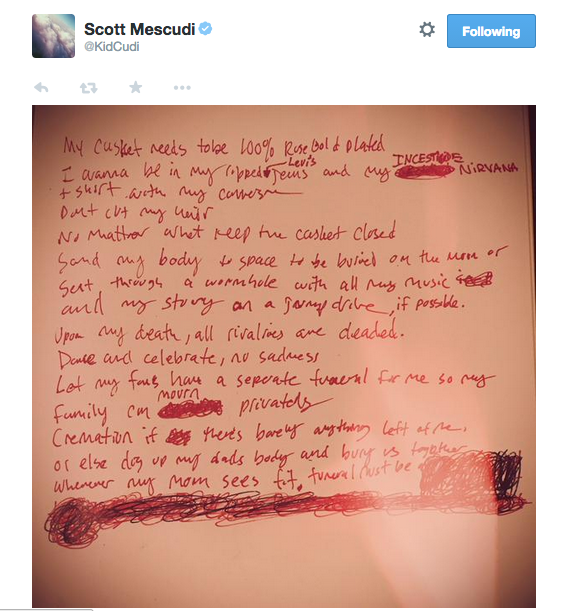 Scott Mescudi
@KidCudi
Following
My casket needs to be 100% Rose Gold plated
I wanna be in my ripped Levi's Jeans and my INCESTICIDE NIRVANA
t shirt with my converse
Dont cut my hair
No matter what keep the casket closed
Send my body to space to be buried on the moon or
sent through a wormhole with all my music
and my story on a jump drive, if possible.
Upon my death, all rivalries are deaded.
Dance and celebrate, no sadness
Let my fans have a seperate funeral for me so my
family can mourn privately
Cremation if theres barely anything left of me,
or else dig up my dads body and bury us together
wherever my mom sees fit. funeral must be